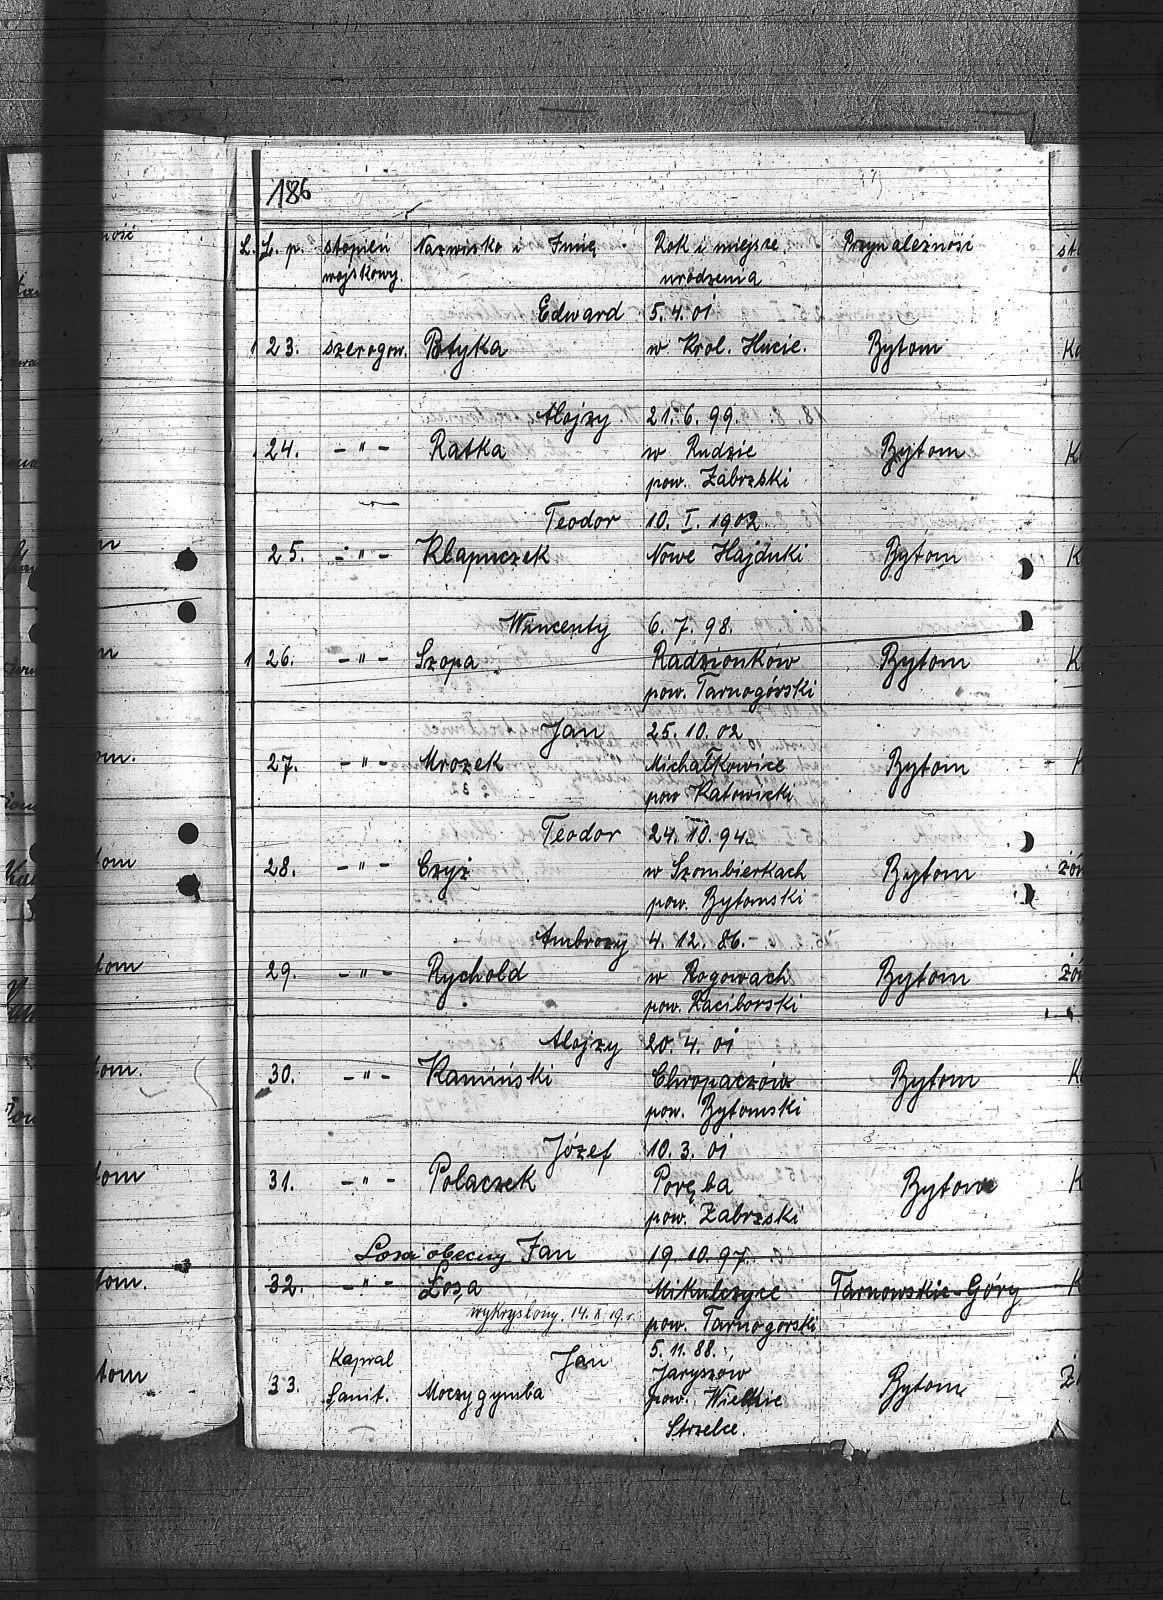 186
L. p. stopień Nazwisko i Imię Rok i miejsce Przynależność
wojskowy. urodzenia
Edward 5.4.01
23. szeregow. Potyka w Krol. Hucie. Bytom
Alojzy 21.6.99.
24. - " - Ratka w Rudzie Bytom
pow. Zabrzski
Teodor 10. I. 1902
25. - " - Klapuczek Nowe Hajduki Bytom
Wincenty 6.7.98.
26. - " - Szopa Radzionków Bytom
pow. Tarnogórski
Jan 25.10.02
27. - " - Mrozek Michałkowice Bytom
pow Katowicki
Teodor 24.10.94.
28. - " - Czyż w Szombierkach Bytom
pow. Bytomski
Ambrozy 4.12.86.
29. - " - Rychold w Rogowach Bytom
pow. Raciborski
Alojzy 20.4.01
30. - " - Kamiński Chropaczów Bytom
pow. Bytomski
Józef 10.3.01
31. - " - Polaczek Poręba Bytom
pow. Zabrzski
obecny Jan 19.10.97.
32. - " - Losa Mikulczyce Tarnowskie-Góry
wykryslony. 14.X.19. pow. Tarnogorski
Kapral Jan 5.11.88.
Jaryszów
33. Sanit. Moczygymba pow. Wielkie Bytom
Strzelce.